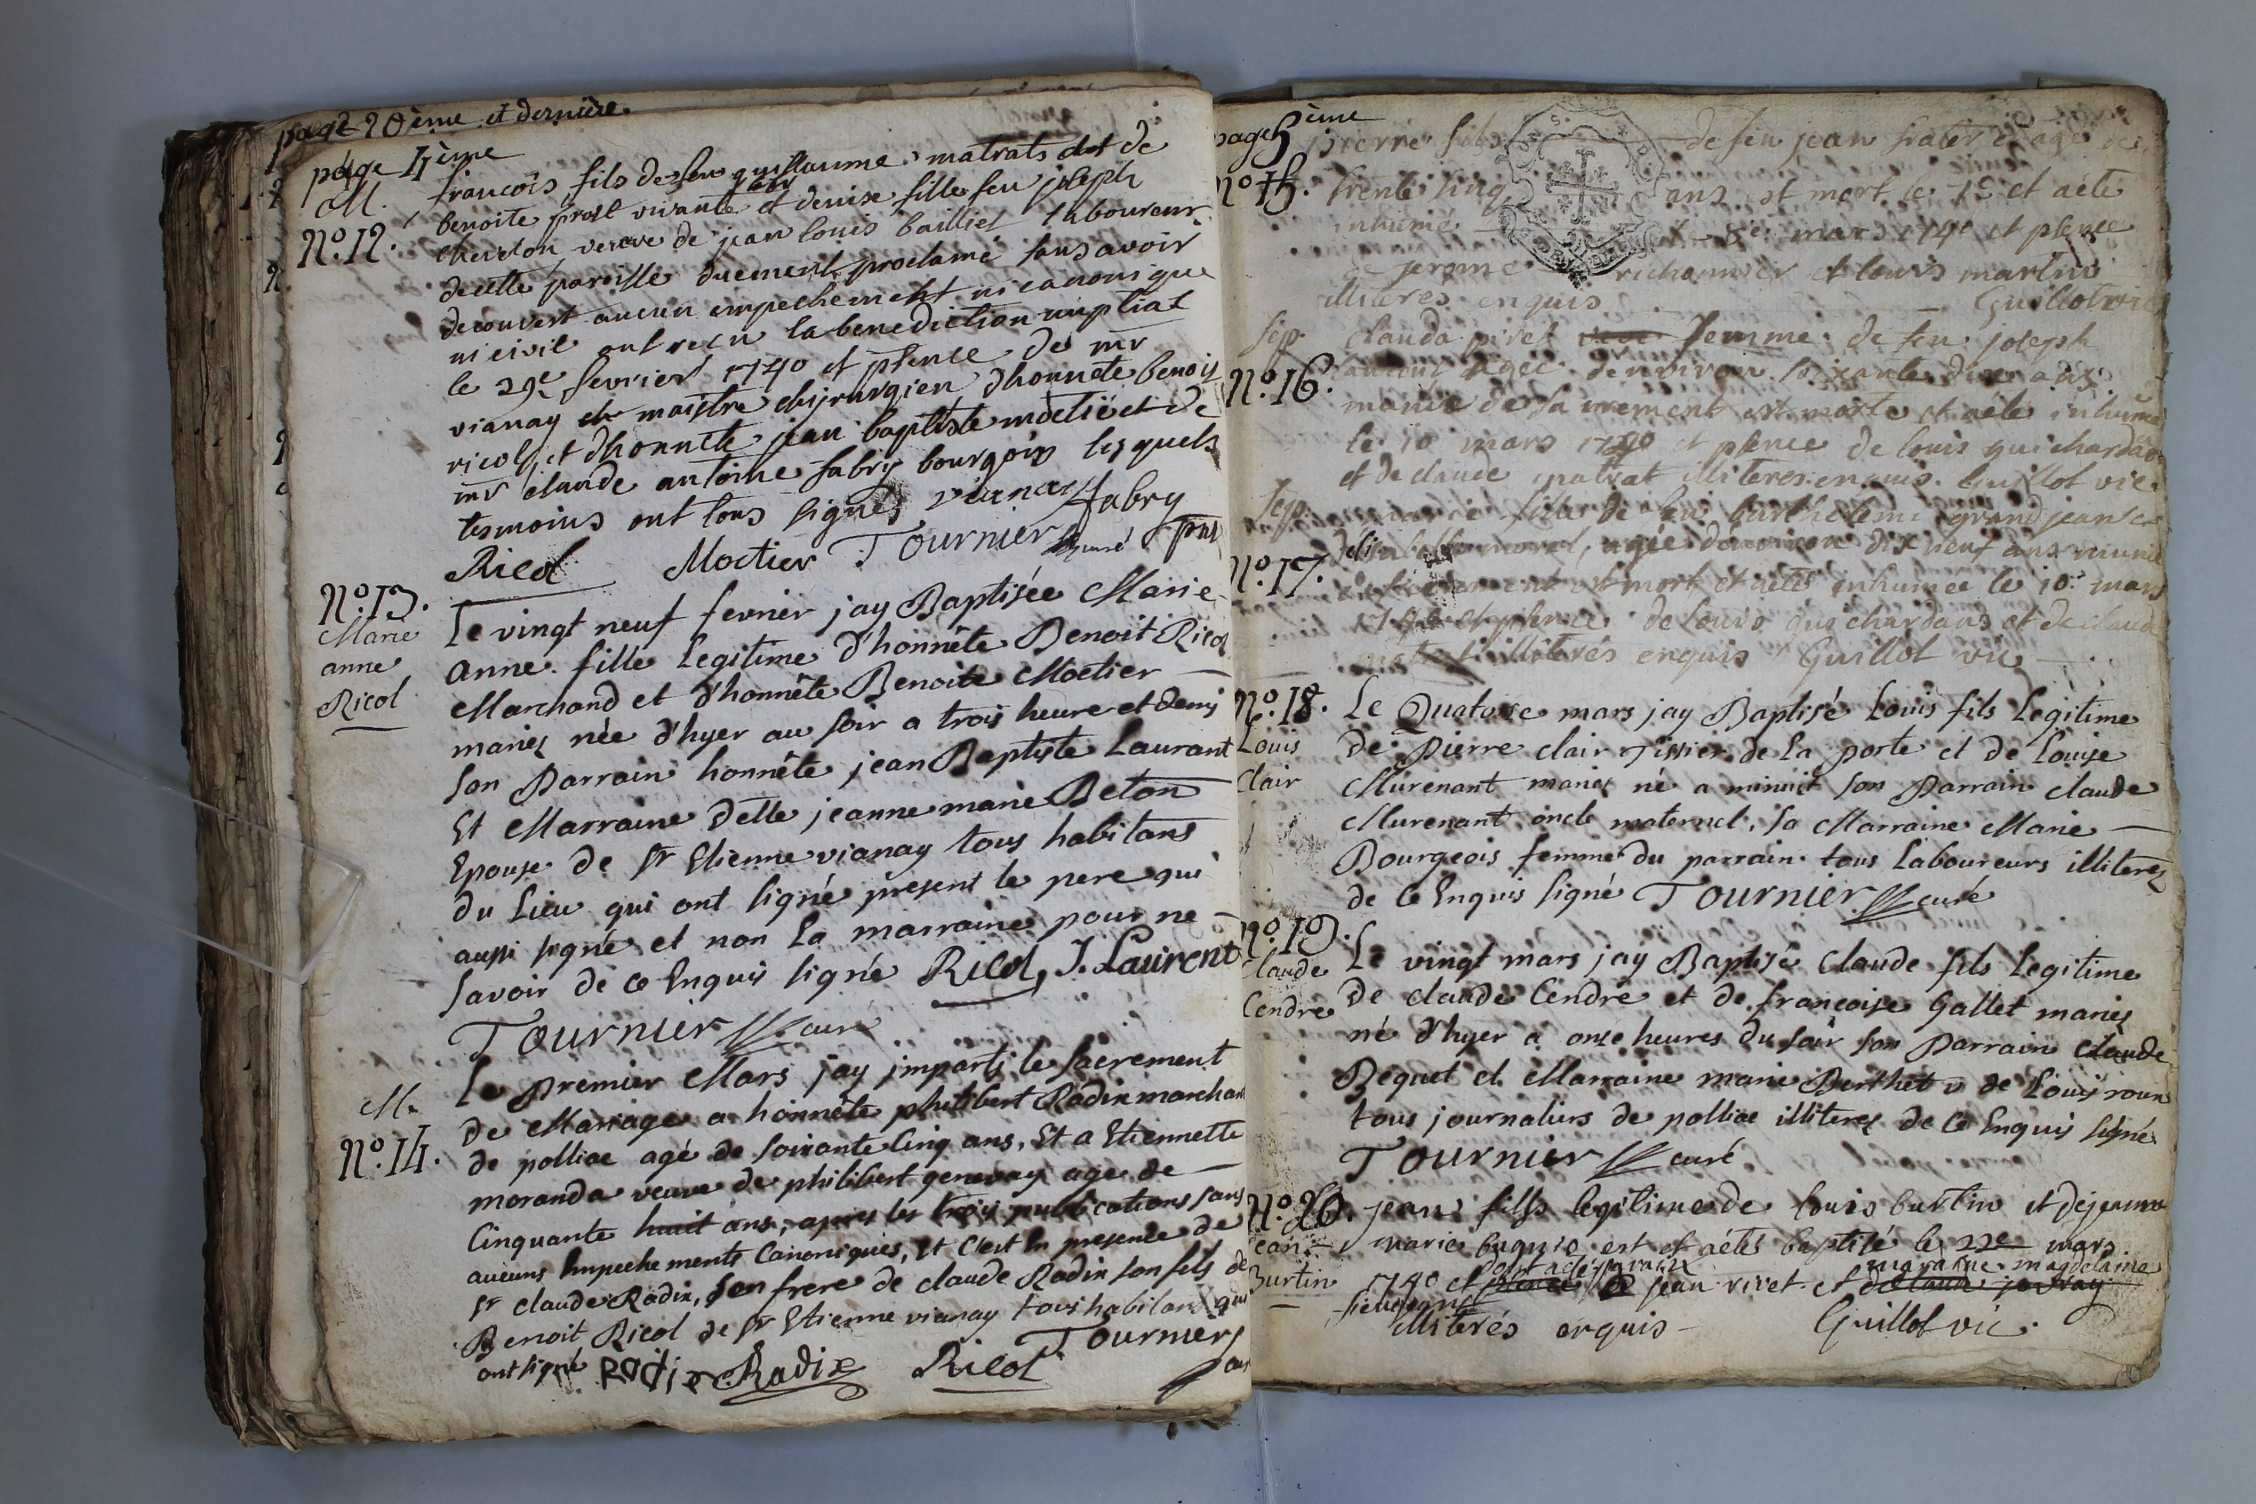 page 20ème et dernière.
page 4ème
M.
N.º 12.
francois fils de feu guillaume matrat et de
benoite prost vivante et denise fille feu joseph
cherdon veuve de jean louis bailliet laboureur
de cette paroisse duement proclamé sans avoir
decouvert aucun empechement ni canonique
ni civil ont recu la benediction nuptial
le 29e fevrier 1740 et psence de mr
vianay maistre chijrurgien d'honnete benoit
ricol et d'honnete jean baptiste moetié et de
mr claude antoine fabry bourgois lesquels
tesmoins ont tous signés vianay fabry
Ricol Moctier Tournier curé pnt
N.º 13.
Marie
anne
Ricol
Le vingt neuf fevrier jay Baptisée Marie
anne fille Legitime d'honnête Benoit Ricol
Marchand et d'honnête Benoite Moetier
mariez née d'hyer au soir a trois heure et demi
son Parrain honnête jean Baptiste Laurant
Et Marraine delle jeanne marie Beton
Epouse de Sr Etienne vianay tous habitans
du Lieu qui ont signé present le pere qui
aussi signé et non La marraine pour ne
savoir de ce Enquis signé Ricol, J. Laurent
Tournier curé
M.
N.º 14.
Le Premier Mars jay imparti le sacrement
de Mariage a honnête philibert Radix marchand
de polliae agé de soixante Cinq ans, Et a Etiennette
moranda veuve de philibert genevay age de
Cinquante huit ans, apres les trois publications sans
aucuns Empechements Canoniques, Et c'est En presence de
Sr claude Radix, son frere de claude Radix son fils de
Benoit Ricol de Sr Etienne vianay tous habitans qui
ont signé Radix Radix Ricol Tournier
cur
page 5ème
N.º 15.
pierre fils de feu jean frater agé de
trente cinq ans est mort le 7e et aété
inhumé le 8e mars 1740 et psence
de jerome richonnier et louis martin
illiteres enquis Guillot vic
Sep.
N.º 16.
Clauda pivet femme de feu joseph
agée denviron soixante dix ans
munie de sacrement est morte et aété inhumé
le 10 mars 1740 et psence de louis guichardan
et de claude matrat illiteres enquis. Guillot vic.
Sep.
N.º 17.
marie fille de feu barthelemi grandjean et
morel, agée denviron dix neuf ans munie
de sacrement est mort et aété inhumée le 10e mars
1740 et psence de louis guichardan et de claude
matrat illiterés enquis Guillot vic
N.º 18.
Louis
Clair
Le Quatorze mars jay Baptisé Louis fils Legitime
de Pierre clair Tissier de La porte et de Louise
Murenant mariez né a minuit son Parrain claude
Murenant oncle maternel, sa Marraine Marie
Bourgeois femme du parrain tous Laboureurs illiterez
de ce Enquis signé Tournier curé
N.º 19.
Claude
Cendre
Le vingt mars jay Baptisé Claude fils Legitime
de claude Cendre et de francoise Gallet mariez
né d'hyer a onze heures du soir son Parrain claude
Bequet et Marraine marie Berthet v de Louis roux
tous journaliers de polliae illiterez de ce Enquis signé
Tournier curé
N.º 20.
jean
Burtin
jean fils legitime de louis burtin et de jeanne
marie buguie est et aétés baptisé le 22e mars
1740 et jean vivet et maraine magdelaine
illiterés enquis Guillot vic.